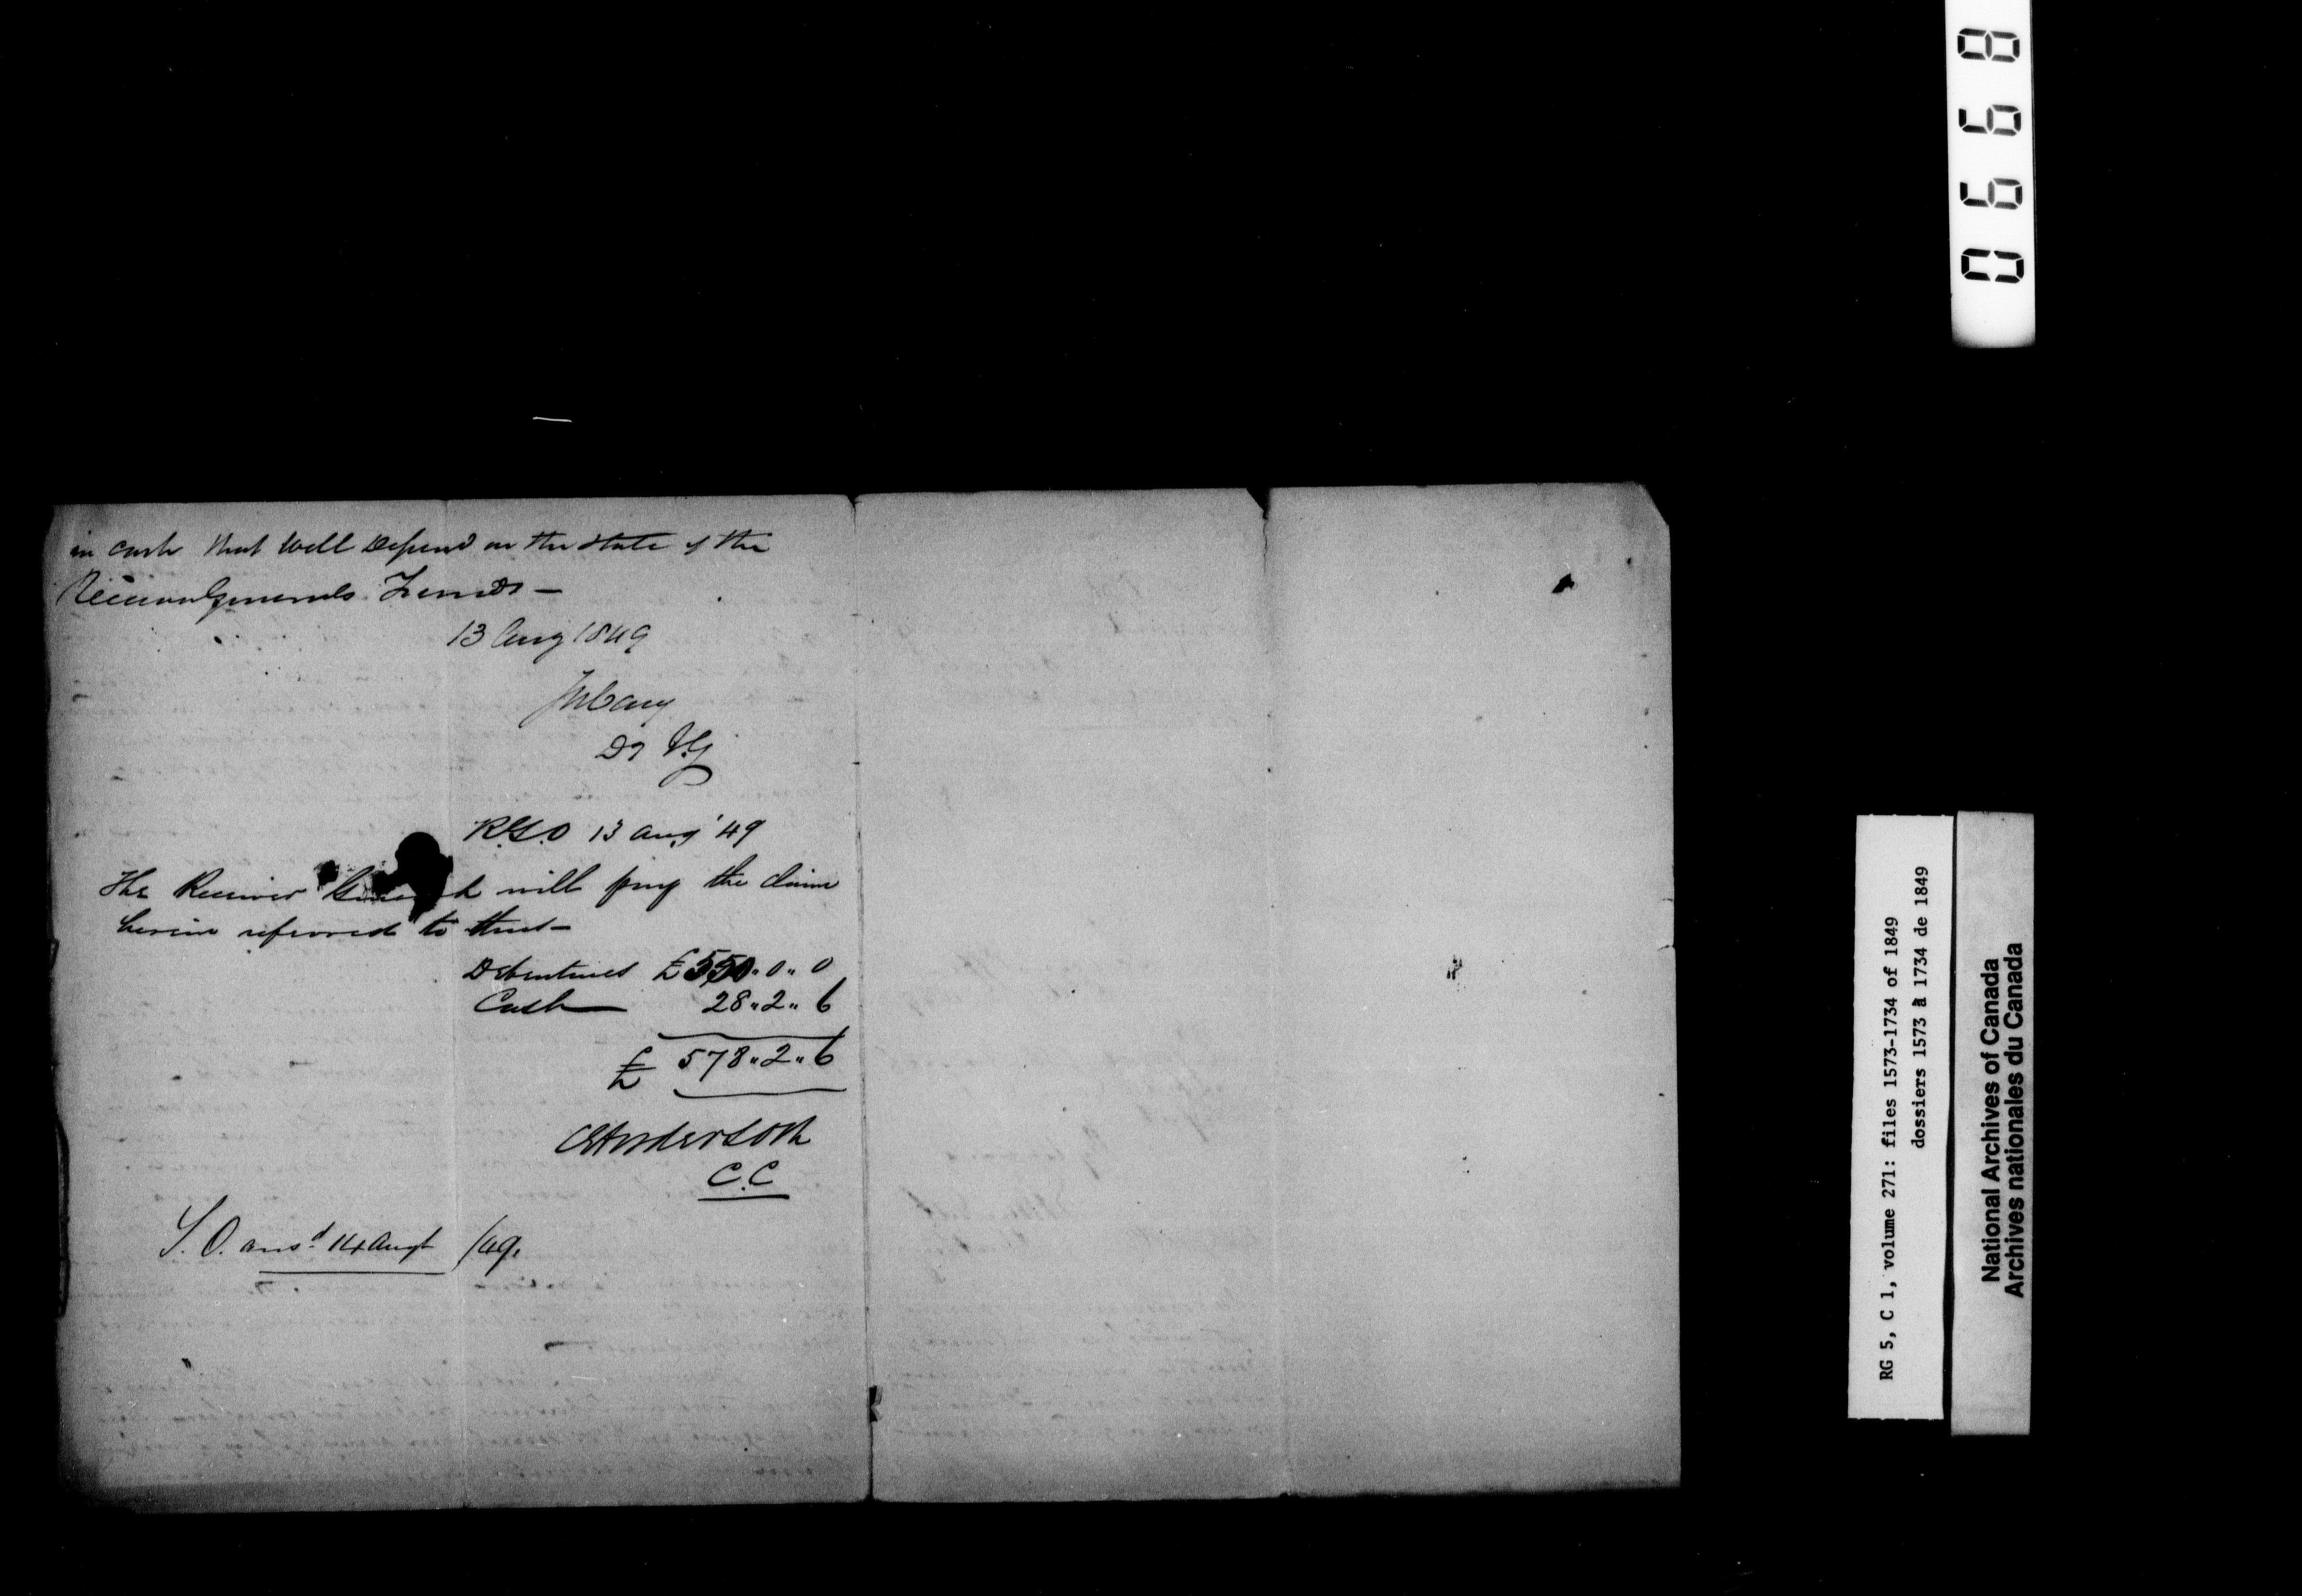 in cash that will Depend on the state of the
Receiver Generals Funds —
13 Aug 1849
Jos Cary
Dy I.G.
R.G.O 13 Aug '49
The Receiver General will pay the claim
herein referred to thus —
Debentures £550.. 0.. 0
Cash 28.. 2.. 6
£ 578.. 2.. 6
CE Anderson
C.C
S. O. ansd. 14 Augt /49.
0668
RG 5, C 1, volume 271: files 1573-1734 of 1849
dossiers 1573 à 1734 de 1849
National Archives of Canada
Archives nationales du Canada